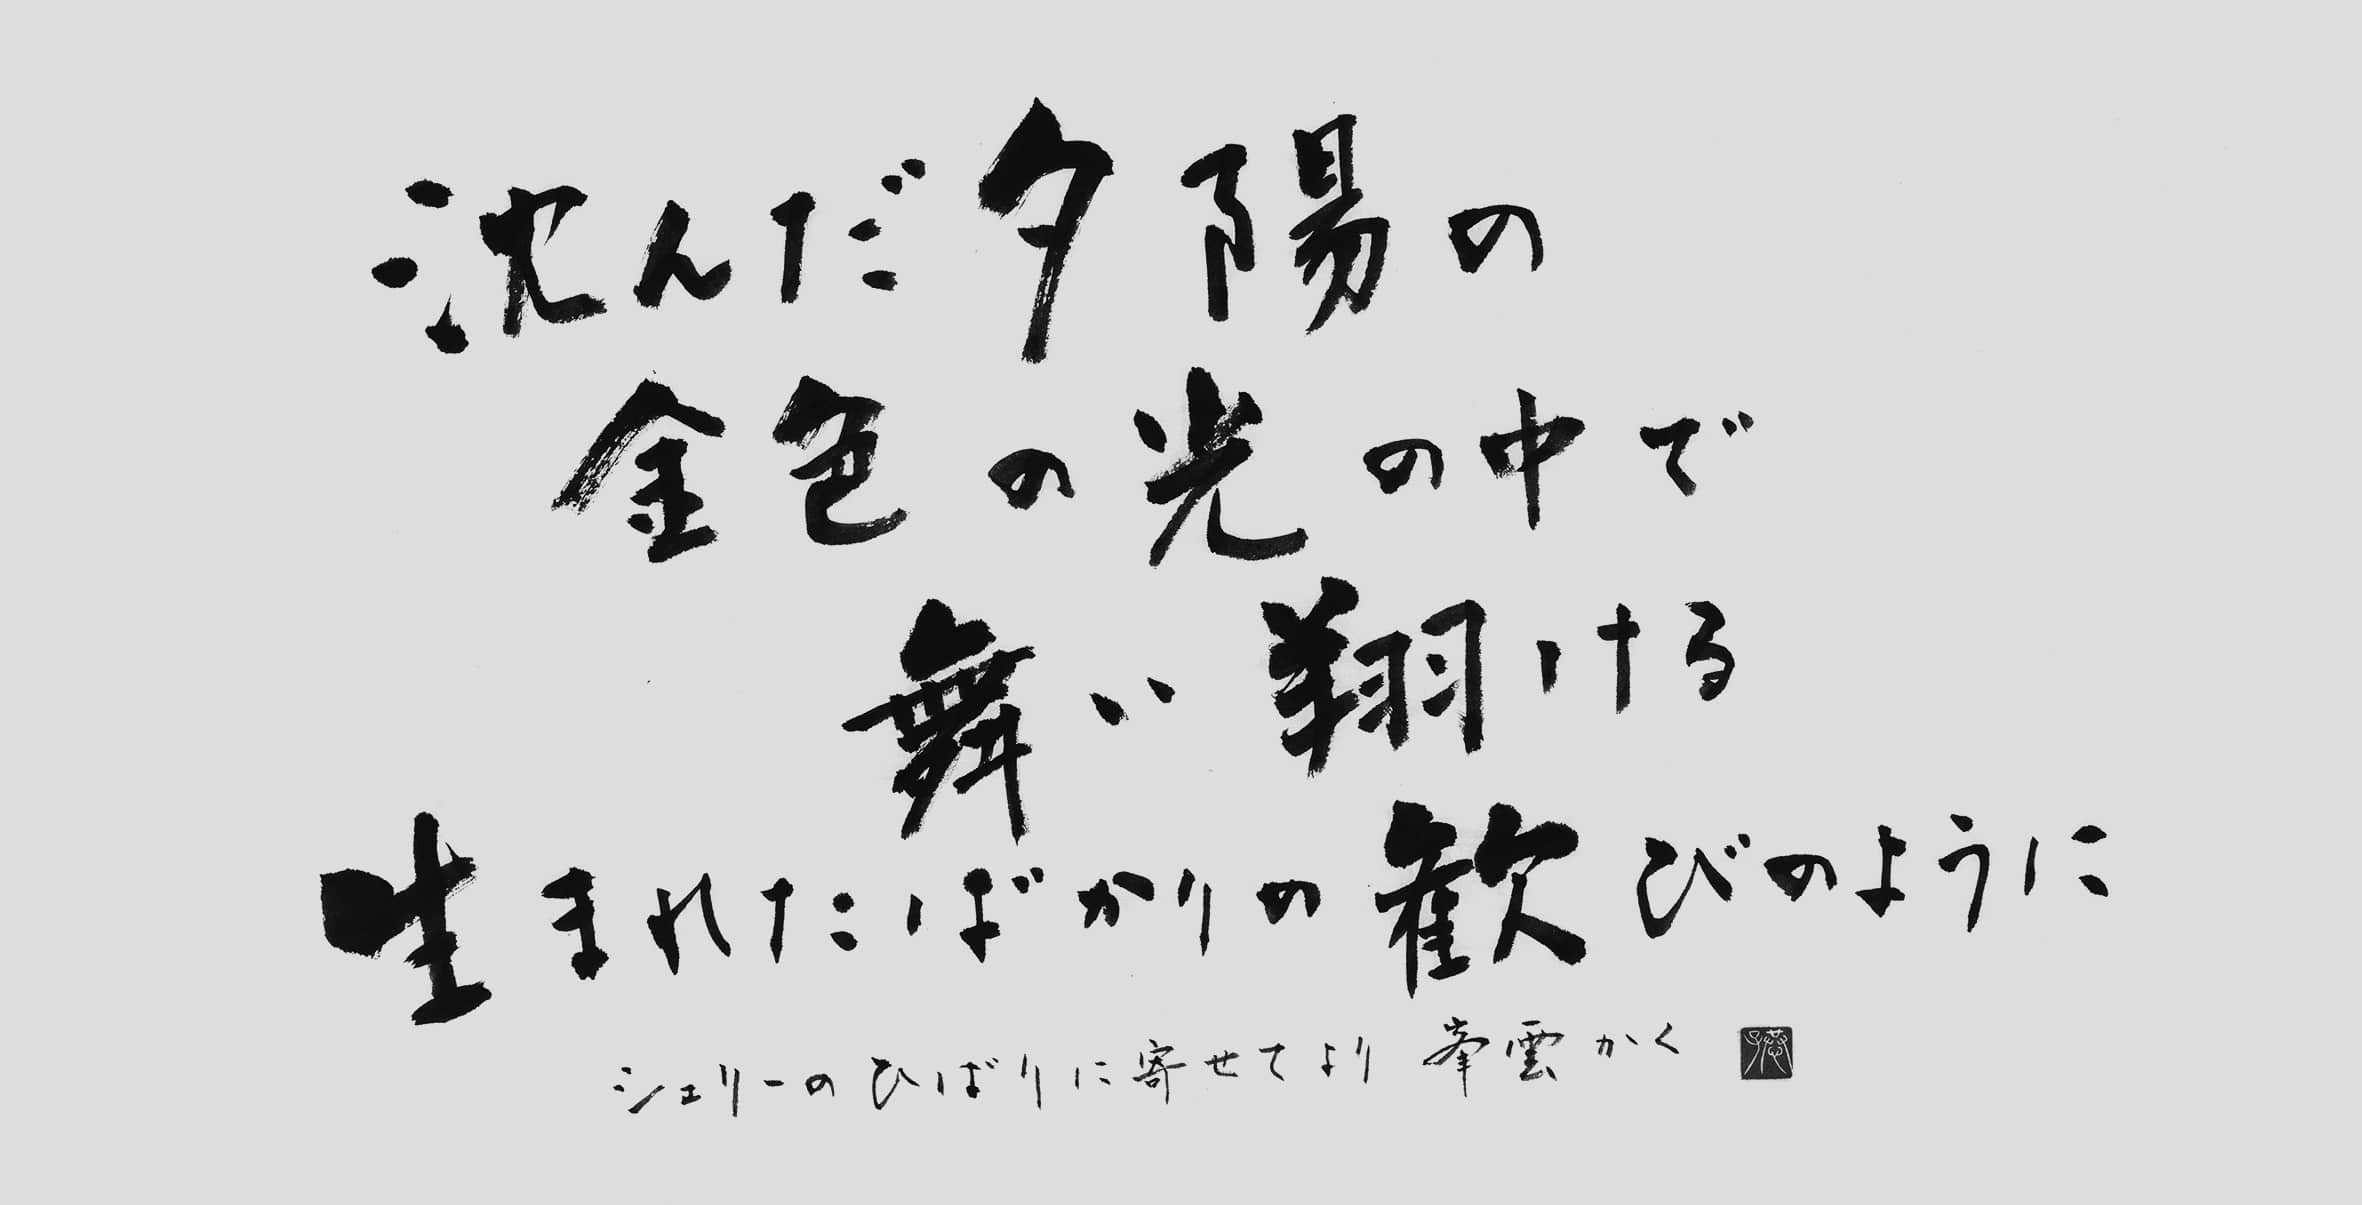 沈んだ夕陽の
金色の光の中で
舞い翔ける
生まれたばかりの歓びのように
シェリーのひばりに寄せてより 峯雲かく